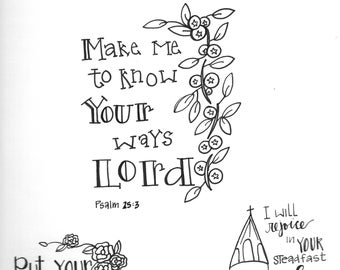 Make me
to know
Your
ways
Lord
Psalm 25:3
I will
rejoice
in Your
Steadfast
Put Your